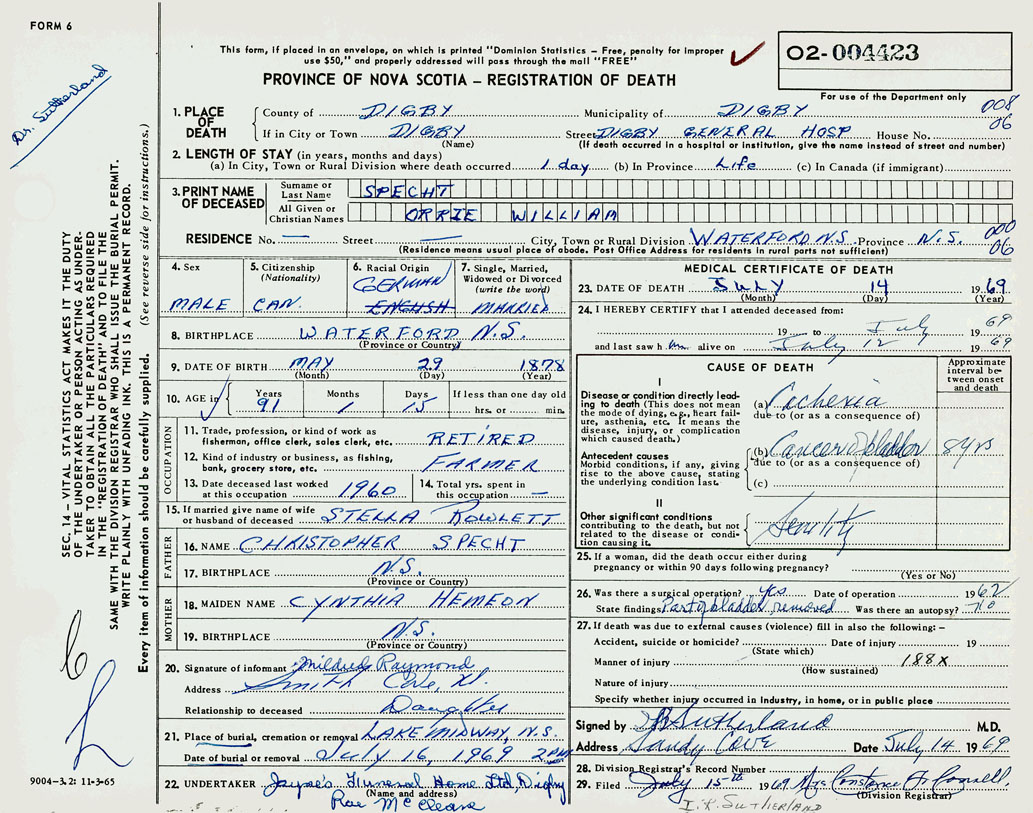 FORM 6
Dr. Sutherland
This form, if placed in an envelope, on which is printed "Dominion Statistics – Free, penalty for improper
use $50," and properly addressed will pass through the mail "FREE"
PROVINCE OF NOVA SCOTIA – REGISTRATION OF DEATH
O2-004423
For use of the Department only
008
06
1. PLACE OF DEATH
County of DIGBY Municipality of DIGBY
If in City or Town DIGBY Street DIGBY GENERAL HOSP House No.
(Name) (If death occurred in a hospital or institution, give the name instead of street and number)
2. LENGTH OF STAY (in years, months and days)
(a) In City, Town or Rural Division where death occurred 1 day (b) In Province Life (c) In Canada (if immigrant)
3. PRINT NAME OF DECEASED
Surname or Last Name SPECHT
All Given or Christian Names ORRIE WILLIAM
000
06
RESIDENCE No. — Street — City, Town or Rural Division WATERFORD NS. Province N.S.
(Residence means usual place of abode. Post Office Address for residents in rural parts not sufficient)
4. Sex
MALE
5. Citizenship (Nationality)
CAN.
6. Racial Origin
GERMAN
ENGLISH
7. Single, Married, Widowed or Divorced (write the word)
MARRIED
8. BIRTHPLACE WATERFORD N.S.
(Province or Country)
9. DATE OF BIRTH MAY 29 1878
(Month) (Day) (Year)
10. AGE in Years Months Days If less than one day old
91 1 15 hrs. or min.
OCCUPATION
11. Trade, profession, or kind of work as fisherman, office clerk, sales clerk, etc. RETIRED
12. Kind of industry or business, as fishing, bank, grocery store, etc. FARMER
13. Date deceased last worked at this occupation 1960
14. Total yrs. spent in this occupation —
15. If married give name of wife or husband of deceased STELLA ROWLETT
FATHER
16. NAME CHRISTOPHER SPECHT
17. BIRTHPLACE N.S.
(Province or Country)
MOTHER
18. MAIDEN NAME CYNTHIA HEMEON
19. BIRTHPLACE N.S.
(Province or Country)
20. Signature of informant Mildred Raymond
Address Smith Cove, N.
Relationship to deceased Daughter
21. Place of burial, cremation or removal LAKE MIDWAY, N.S.
Date of burial or removal July 16, 1969 2 PM
22. UNDERTAKER Jayne's Funeral Home Ltd. Digby
(Name and address)
Rae McCleave
MEDICAL CERTIFICATE OF DEATH
23. DATE OF DEATH JULY 14 1969
(Month) (Day) (Year)
24. I HEREBY CERTIFY that I attended deceased from:
19 to July 1969
and last saw him alive on July 12 1969
CAUSE OF DEATH
Approximate interval between onset and death
I
Disease or condition directly leading to death (This does not mean the mode of dying, e.g., heart failure, asthenia, etc. It means the disease, injury, or complication which caused death.)
(a) Cachexia
due to (or as a consequence of)
Antecedent causes
Morbid conditions, if any, giving rise to the above cause, stating the underlying condition last.
(b) Cancer of bladder 8 yrs
due to (or as a consequence of)
(c)
II
Other significant conditions contributing to the death, but not related to the disease or condition causing it.
Senility
25. If a woman, did the death occur either during pregnancy or within 90 days following pregnancy?
(Yes or No)
26. Was there a surgical operation? yes Date of operation 1962
State findings Part of bladder removed Was there an autopsy? no
27. If death was due to external causes (violence) fill in also the following: –
Accident, suicide or homicide? Date of injury 19
(State which)
Manner of injury 188X
(How sustained)
Nature of injury
Specify whether injury occurred in industry, in home, or in public place
Signed by Sutherland M.D.
Address Sandy Cove Date July 14 1969
28. Division Registrar's Record Number
29. Filed July 15th 1969 Mrs Constance Connell,
(Division Registrar)
I.R. SUTHERLAND
SEC. 14 – VITAL STATISTICS ACT MAKES IT THE DUTY
OF THE UNDERTAKER OR PERSON ACTING AS UNDER-
TAKER TO OBTAIN ALL THE PARTICULARS REQUIRED
IN THE "REGISTRATION OF DEATH" AND TO FILE THE
SAME WITH THE DIVISION REGISTRAR WHO SHALL ISSUE THE BURIAL PERMIT.
WRITE PLAINLY WITH UNFADING INK. THIS IS A PERMANENT RECORD.
Every item of information should be carefully supplied. (See reverse side for instructions.)
9004-3.2: 11-3-65